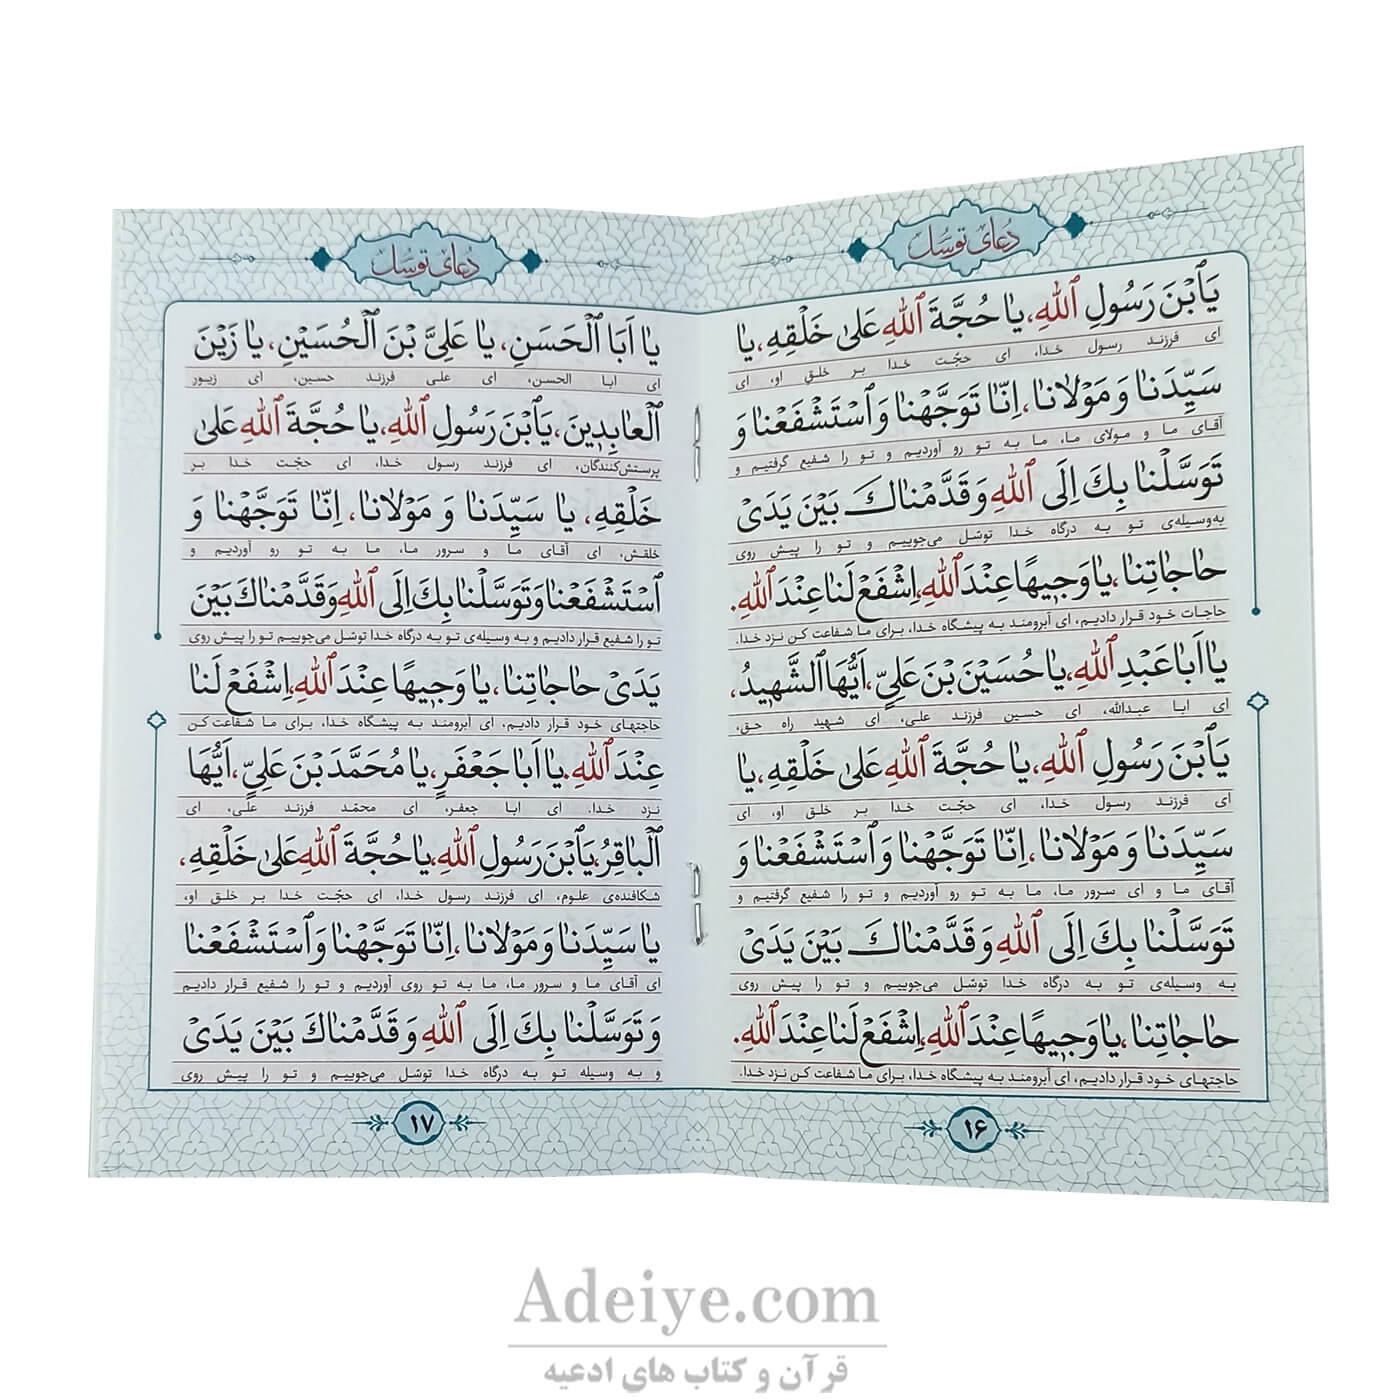 دعای توسل
يَا ابْنَ رَسُولِ اللهِ، يا حُجَّةَ اللهِ عَلىٰ خَلْقِهِ، يا
ای فرزند رسول خدا، ای حجّت خدا بر خلقِ او، ای
سَيِّدَنا وَ مَوْلانا، اِنّا تَوَجَّهْنا وَ اسْتَشْفَعْنا وَ
آقای ما و مولای ما، ما به تو رو آوردیم و تو را شفیع گرفتیم و
تَوَسَّلْنا بِكَ اِلَى اللهِ وَ قَدَّمْناكَ بَيْنَ يَدَيْ
به‌وسیله‌ی تو به درگاه خدا توسّل می‌جوییم و تو را پیش روی
حاجاتِنا، يا وَجيهًا عِنْدَ اللهِ، اِشْفَعْ لَنا عِنْدَ اللهِ.
حاجات خود قرار دادیم، ای آبرومند به پیشگاه خدا، برای ما شفاعت کن نزد خدا.
يا اَبا عَبْدِ اللهِ، يا حُسَيْنَ بْنَ عَلِيٍّ، اَيُّهَا الشَّهيدُ،
ای ابا عبدالله، ای حسین فرزند علی، ای شهید راه حق،
يَا ابْنَ رَسُولِ اللهِ، يا حُجَّةَ اللهِ عَلىٰ خَلْقِهِ، يا
ای فرزند رسول خدا، ای حجّت خدا بر خلق او، ای
سَيِّدَنا وَ مَوْلانا، اِنّا تَوَجَّهْنا وَ اسْتَشْفَعْنا وَ
آقای ما و ای سرور ما، ما به تو رو آوردیم و تو را شفیع گرفتیم و
تَوَسَّلْنا بِكَ اِلَى اللهِ وَ قَدَّمْناكَ بَيْنَ يَدَيْ
به وسیله‌ی تو به درگاه خدا توسّل می‌جوییم و تو را پیش روی
حاجاتِنا، يا وَجيهًا عِنْدَ اللهِ، اِشْفَعْ لَنا عِنْدَ اللهِ.
حاجتهای خود قرار دادیم، ای آبرومند به پیشگاه خدا، برای ما شفاعت کن نزد خدا.
۱۶
دعای توسل
يا اَبَا الْحَسَنِ، يا عَلِيَّ بْنَ الْحُسَيْنِ، يا زَيْنَ
ای ابا الحسن، ای علی فرزند حسین، ای زیور
الْعابِدينَ، يَا ابْنَ رَسُولِ اللهِ، يا حُجَّةَ اللهِ عَلىٰ
پرستش‌کنندگان، ای فرزند رسول خدا، ای حجّت خدا بر
خَلْقِهِ، يا سَيِّدَنا وَ مَوْلانا، اِنّا تَوَجَّهْنا وَ
خلقش، ای آقای ما و سرور ما، ما به تو رو آوردیم و
اسْتَشْفَعْنا وَ تَوَسَّلْنا بِكَ اِلَى اللهِ وَ قَدَّمْناكَ بَيْنَ
تو را شفیع قرار دادیم و به وسیله‌ی تو به درگاه خدا توسّل می‌جوییم تو را پیش روی
يَدَيْ حاجاتِنا، يا وَجيهًا عِنْدَ اللهِ، اِشْفَعْ لَنا
حاجتهای خود قرار دادیم، ای آبرومند به پیشگاه خدا، برای ما شفاعت کن
عِنْدَ اللهِ. يا اَبا جَعْفَرٍ، يا مُحَمَّدَ بْنَ عَلِيٍّ، اَيُّهَا
نزد خدا. ای ابا جعفر، ای محمّد فرزند علی، ای
الْباقِرُ، يَا ابْنَ رَسُولِ اللهِ، يا حُجَّةَ اللهِ عَلىٰ خَلْقِهِ،
شکافنده‌ی علوم، ای فرزند رسول خدا، ای حجّت خدا بر خلق او،
يا سَيِّدَنا وَ مَوْلانا، اِنّا تَوَجَّهْنا وَ اسْتَشْفَعْنا
ای آقای ما و سرور ما، ما به تو روی آوردیم و تو را شفیع قرار دادیم
وَ تَوَسَّلْنا بِكَ اِلَى اللهِ وَ قَدَّمْناكَ بَيْنَ يَدَيْ
و به وسیله تو به درگاه خدا توسّل می‌جوییم و تو را پیش روی
۱۷
Adeiye.com
قرآن و کتاب های ادعیه